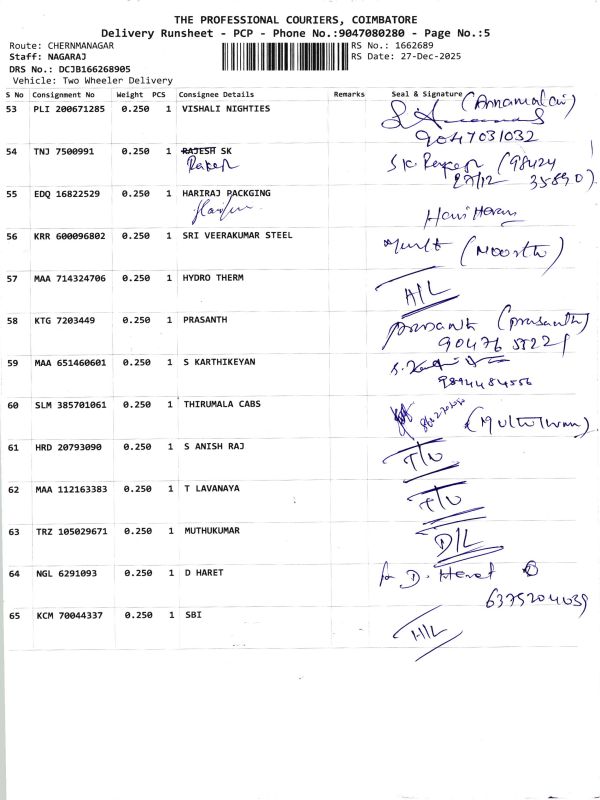 THE PROFESSIONAL COURIERS, COIMBATORE
Delivery Runsheet - PCP - Phone No.:9047080280 - Page No.:5
Route: CHERNMANAGAR RS No.: 1662689
Staff: NAGARAJ RS Date: 27-Dec-2025
DRS No.: DCJB166268905
Vehicle: Two Wheeler Delivery
S No Consignment No Weight PCS Consignee Details Remarks Seal & Signature
53 PLI 200671285 0.250 1 VISHALI NIGHTIES (Annamalai)
9047031032
54 TNJ 7500991 0.250 1 RAJESH SK S.K. Rakesh (98424
Rakesh 27/12 35890)
55 EDQ 16822529 0.250 1 HARIRAJ PACKGING
56 KRR 600096802 0.250 1 SRI VEERAKUMAR STEEL (Moorthi)
57 MAA 714324706 0.250 1 HYDRO THERM A/L
58 KTG 7203449 0.250 1 PRASANTH prasanth (prasanth)
90476 55221
59 MAA 651460601 0.250 1 S KARTHIKEYAN
9894484556
60 SLM 385701061 0.250 1 THIRUMALA CABS
61 HRD 20793090 0.250 1 S ANISH RAJ T/N
62 MAA 112163383 0.250 1 T LAVANAYA T/N
63 TRZ 105029671 0.250 1 MUTHUKUMAR D/L
64 NGL 6291093 0.250 1 D HARET D. Haret
6375204039
65 KCM 70044337 0.250 1 SBI H/L